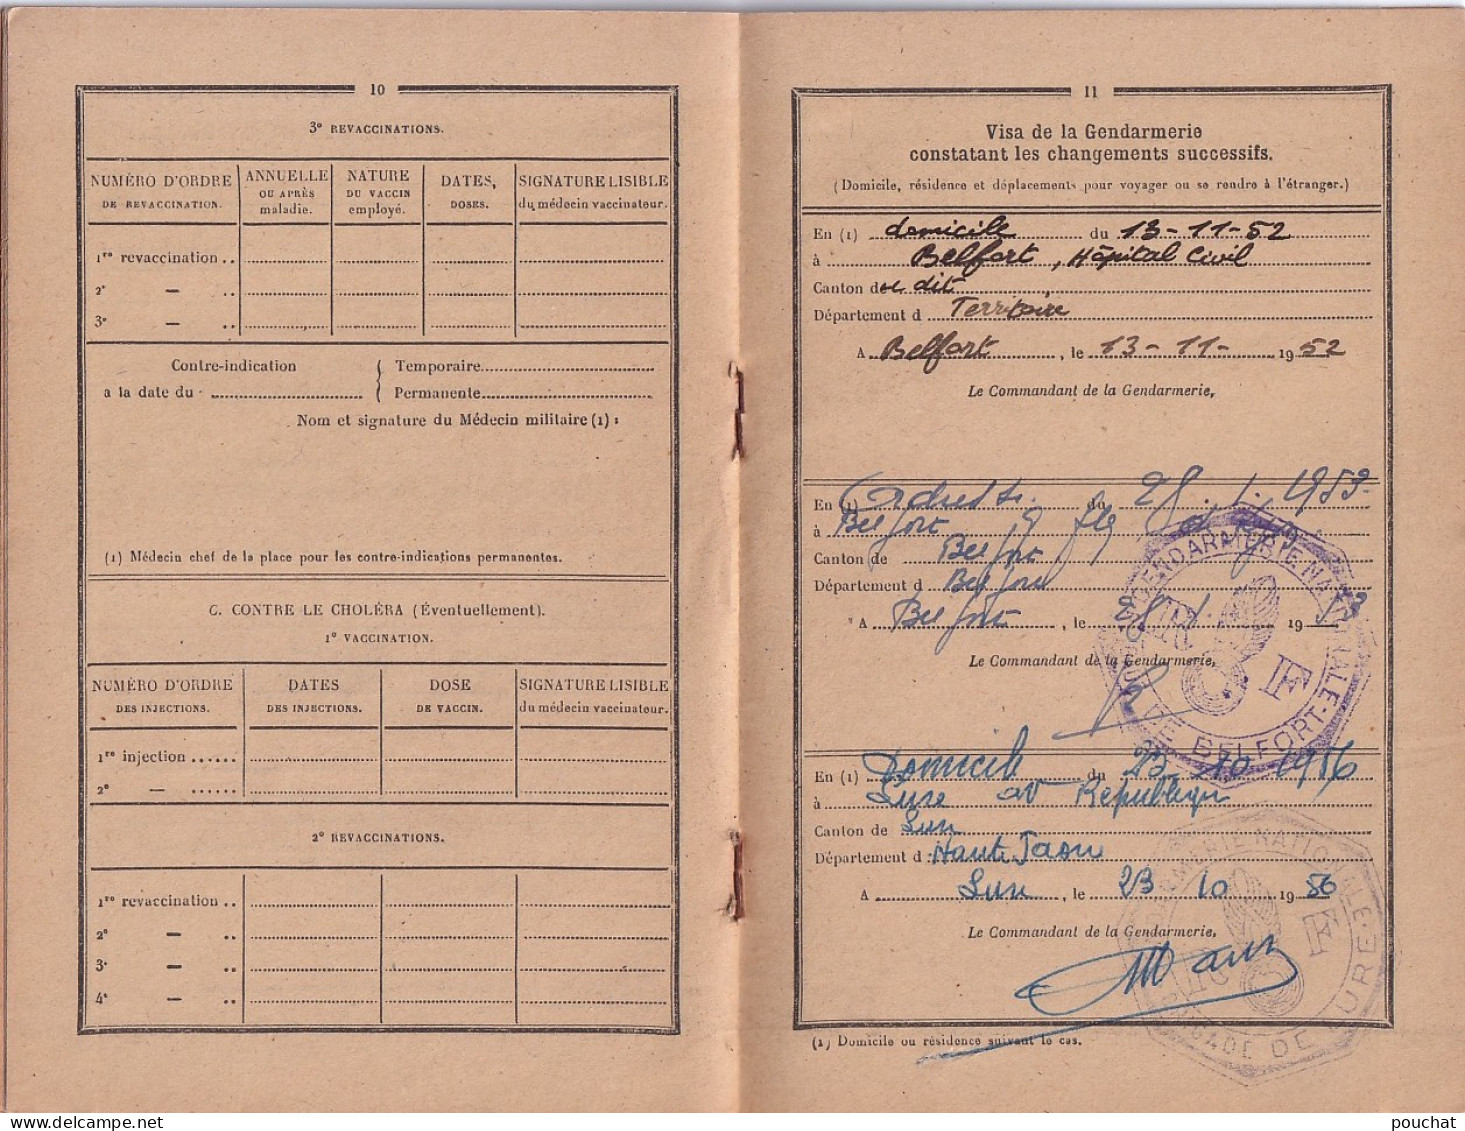 10
3º REVACCINATIONS.
NUMÉRO D'ORDRE DE REVACCINATION.
ANNUELLE OU APRÈS maladie.
NATURE DU VACCIN employé.
DATES, DOSES.
SIGNATURE LISIBLE du médecin vaccinateur.
1re revaccination ..
2e — ..
3e — ..
Contre-indication { Temporaire
a la date du { Permanente
Nom et signature du Médecin militaire (1) :
(1) Médecin chef de la place pour les contre-indications permanentes.
C. CONTRE LE CHOLÉRA (Éventuellement).
1º VACCINATION.
NUMÉRO D'ORDRE DES INJECTIONS.
DATES DES INJECTIONS.
DOSE DE VACCIN.
SIGNATURE LISIBLE du médecin vaccinateur.
1re injection ......
2e — ......
2º REVACCINATIONS.
1re revaccination ..
2e — ..
3e — ..
4e — ..
11
Visa de la Gendarmerie
constatant les changements successifs.
(Domicile, résidence et déplacements pour voyager ou se rendre à l'étranger.)
En (1) domicile du 13-11-52
à Belfort, Hôpital Civil
Canton du dit
Département d Territoire
A Belfort, le 13-11- 1952
Le Commandant de la Gendarmerie,
En (1) adresse du 28.1.1953
à Belfort
Canton de Belfort
Département d Belfort
A Belfort, le 28.1. 1953
Le Commandant de la Gendarmerie,
GENDARMERIE NATIONALE
RF
DE BELFORT
En (1) Domicile du 23-10 1956
à Lure av République
Canton de Lure
Département d Haute Saone
A Lure, le 23 10 1956
Le Commandant de la Gendarmerie,
GENDARMERIE NATIONALE
RF
BRIGADE DE LURE
(1) Domicile ou résidence suivant le cas.
pouchat